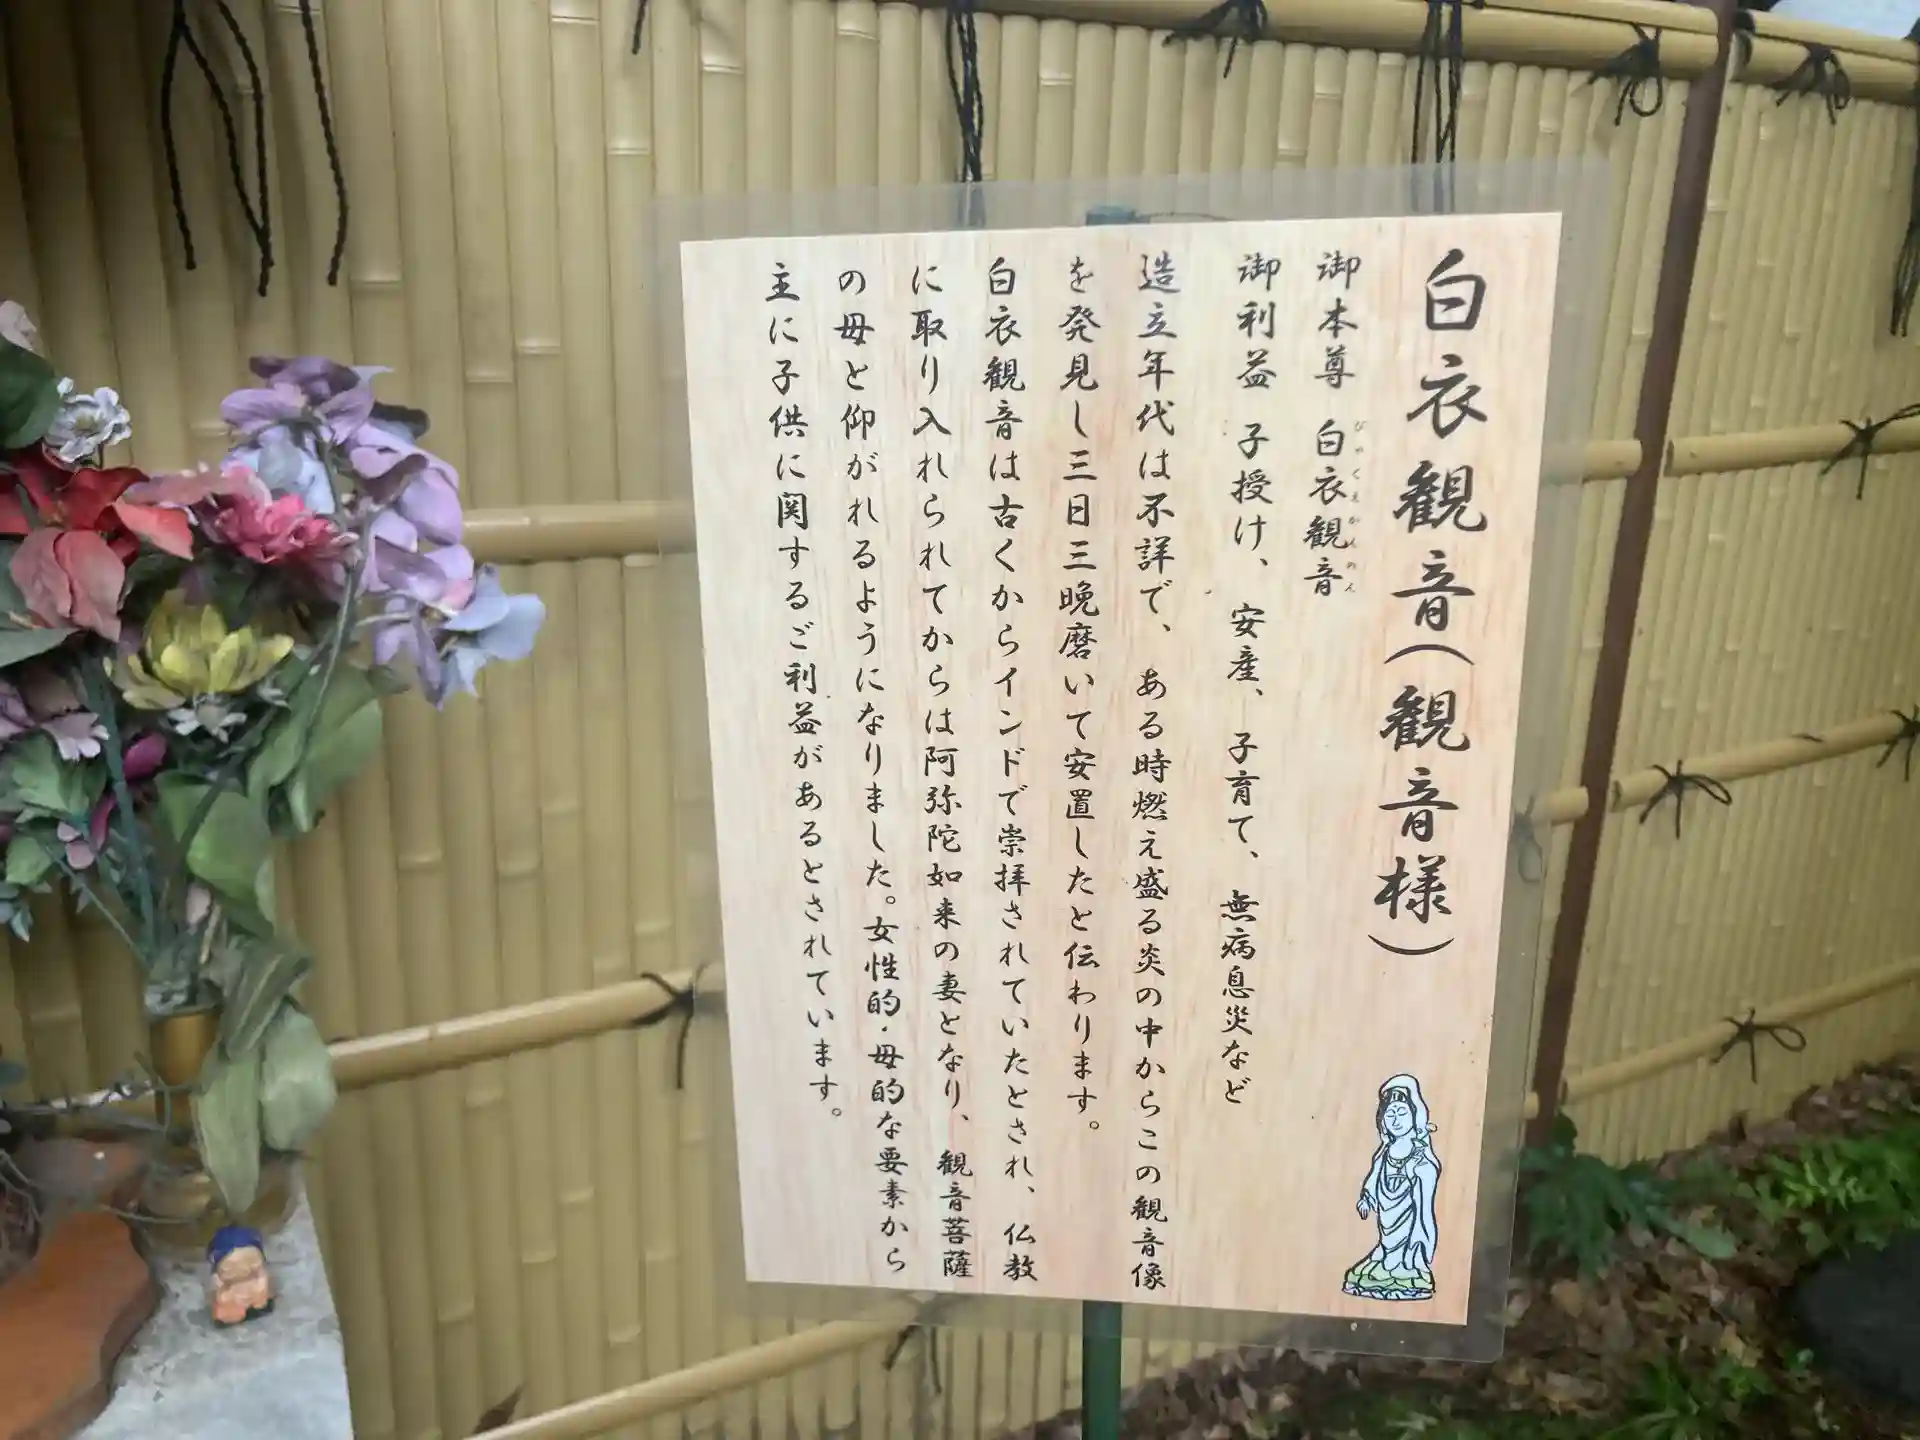 白衣観音(観音様)
御本尊 白衣観音
びゃくえかんのん
御利益 子授け、安産、子育て、無病息災など
造立年代は不詳で、ある時燃え盛る炎の中からこの観音像
を発見し三日三晩磨いて安置したと伝わります。
白衣観音は古くからインドで崇拝されていたとされ、仏教
に取り入れられてからは阿弥陀如来の妻となり、観音菩薩
の母と仰がれるようになりました。女性的・母的な要素から
主に子供に関するご利益があるとされています。